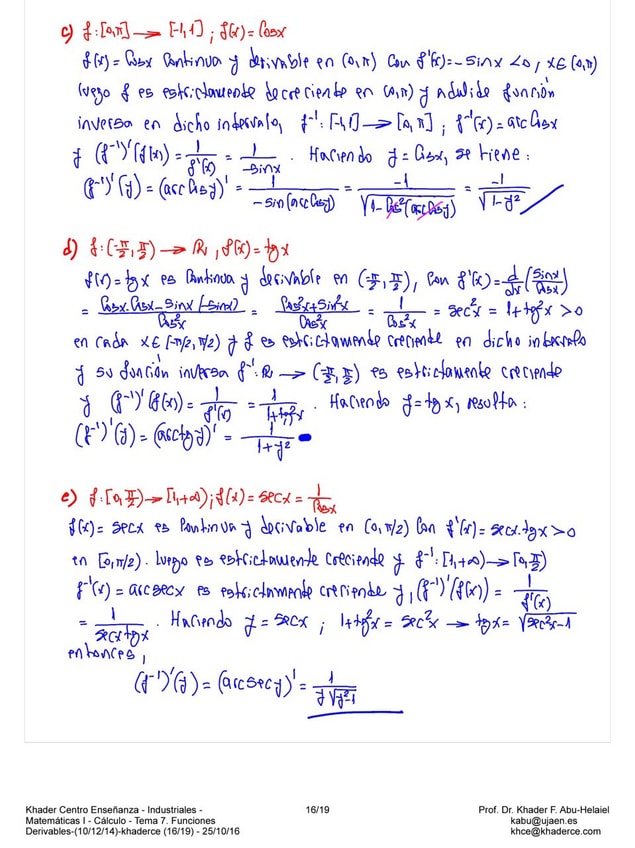 c) f:[0,π] → [-1,1] ; f(x) = Cosx
f(x) = Cosx Continua y derivable en (0,π) Con f'(x) = -Sinx < 0, x∈(0,π)
luego f es estrictamente decreciente en (0,π) y admite función
inversa en dicho intervalo, f⁻¹:[-1,1] → [0,π] ; f⁻¹(x) = arcCosx
y (f⁻¹)'(f(x)) = 1/f'(x) = 1/-sinx . Haciendo y = Cosx, se tiene:
(f⁻¹)'(y) = (arcCosy)' = 1/-sin(arcCosy) = -1/√(1-Cos²(arcCosy)) = -1/√(1-y²)
d) f:(-π/2, π/2) → ℝ, f(x) = tgx
f(x) = tgx es Continua y derivable en (-π/2, π/2), Con f'(x) = d/dx (Sinx/Cosx)
= (Cosx.Cosx - Sinx(-sinx))/Cos²x = (Cos²x+Sin²x)/Cos²x = 1/Cos²x = sec²x = 1+tg²x > 0
en cada x∈(-π/2, π/2) y f es estrictamente creciente en dicho intervalo
y su función inversa f⁻¹: ℝ → (-π/2, π/2) es estrictamente creciente
y (f⁻¹)'(f(x)) = 1/f'(x) = 1/1+tg²x . Haciendo y = tgx, resulta:
(f⁻¹)'(y) = (arctgy)' = 1/1+y²
e) f:[0, π/2) → [1,+∞) ; f(x) = secx = 1/Cosx
f(x) = secx es Continua y derivable en [0, π/2) Con f'(x) = secx.tgx > 0
en [0, π/2). Luego es estrictamente creciente y f⁻¹:[1,+∞) → [0, π/2)
f⁻¹(x) = arcsecx es estrictamente creciente y, (f⁻¹)'(f(x)) = 1/f'(x)
= 1/secx tgx . Haciendo y = secx ; 1+tg²x = sec²x → tgx = √(sec²x-1)
entonces,
(f⁻¹)'(y) = (arcsecy)' = 1/y√(y²-1)
Khader Centro Enseñanza - Industriales - 16/19 Prof. Dr. Khader F. Abu-Helaiel
Matemáticas I - Cálculo - Tema 7. Funciones kabu@ujaen.es
Derivables-(10/12/14)-khaderce (16/19) - 25/10/16 khce@khaderce.com